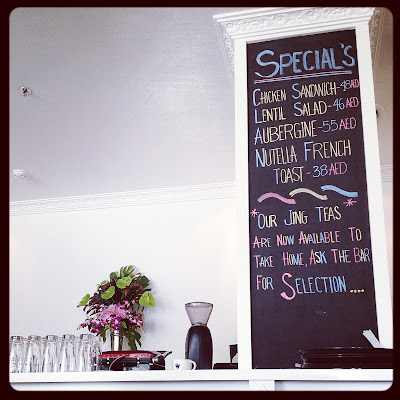 SPECIAL'S
CHICKEN SANDWICH-48 AED
LENTIL SALAD-46 AED
AUBERGINE-55 AED
NUTELLA FRENCH
TOAST-38 AED
*OUR JING TEAS*
ARE NOW AVAILABLE TO
TAKE HOME, ASK THE BAR
FOR SELECTION....